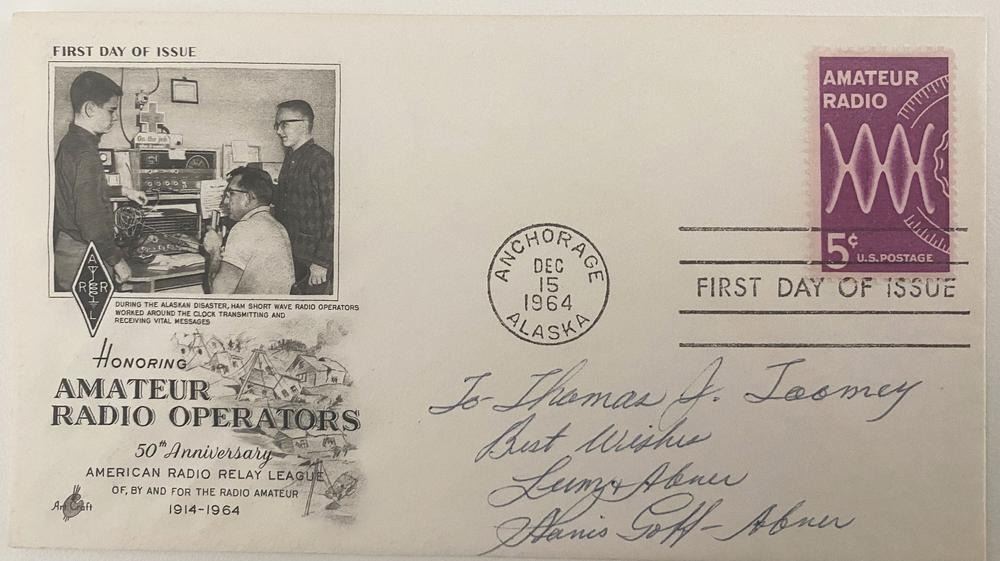 FIRST DAY OF ISSUE
On the job
A
R R
L
DURING THE ALASKAN DISASTER, HAM SHORT WAVE RADIO OPERATORS
WORKED AROUND THE CLOCK TRANSMITTING AND
RECEIVING VITAL MESSAGES
HONORING
AMATEUR
RADIO OPERATORS
50th Anniversary
AMERICAN RADIO RELAY LEAGUE
OF, BY AND FOR THE RADIO AMATEUR
1914-1964
Art Craft
AMATEUR
RADIO
5¢ U.S. POSTAGE
ANCHORAGE
DEC
15
1964
ALASKA
FIRST DAY OF ISSUE
To - Thomas J. Toomey
Best Wishes
Lum & Abner
Goff - Abner